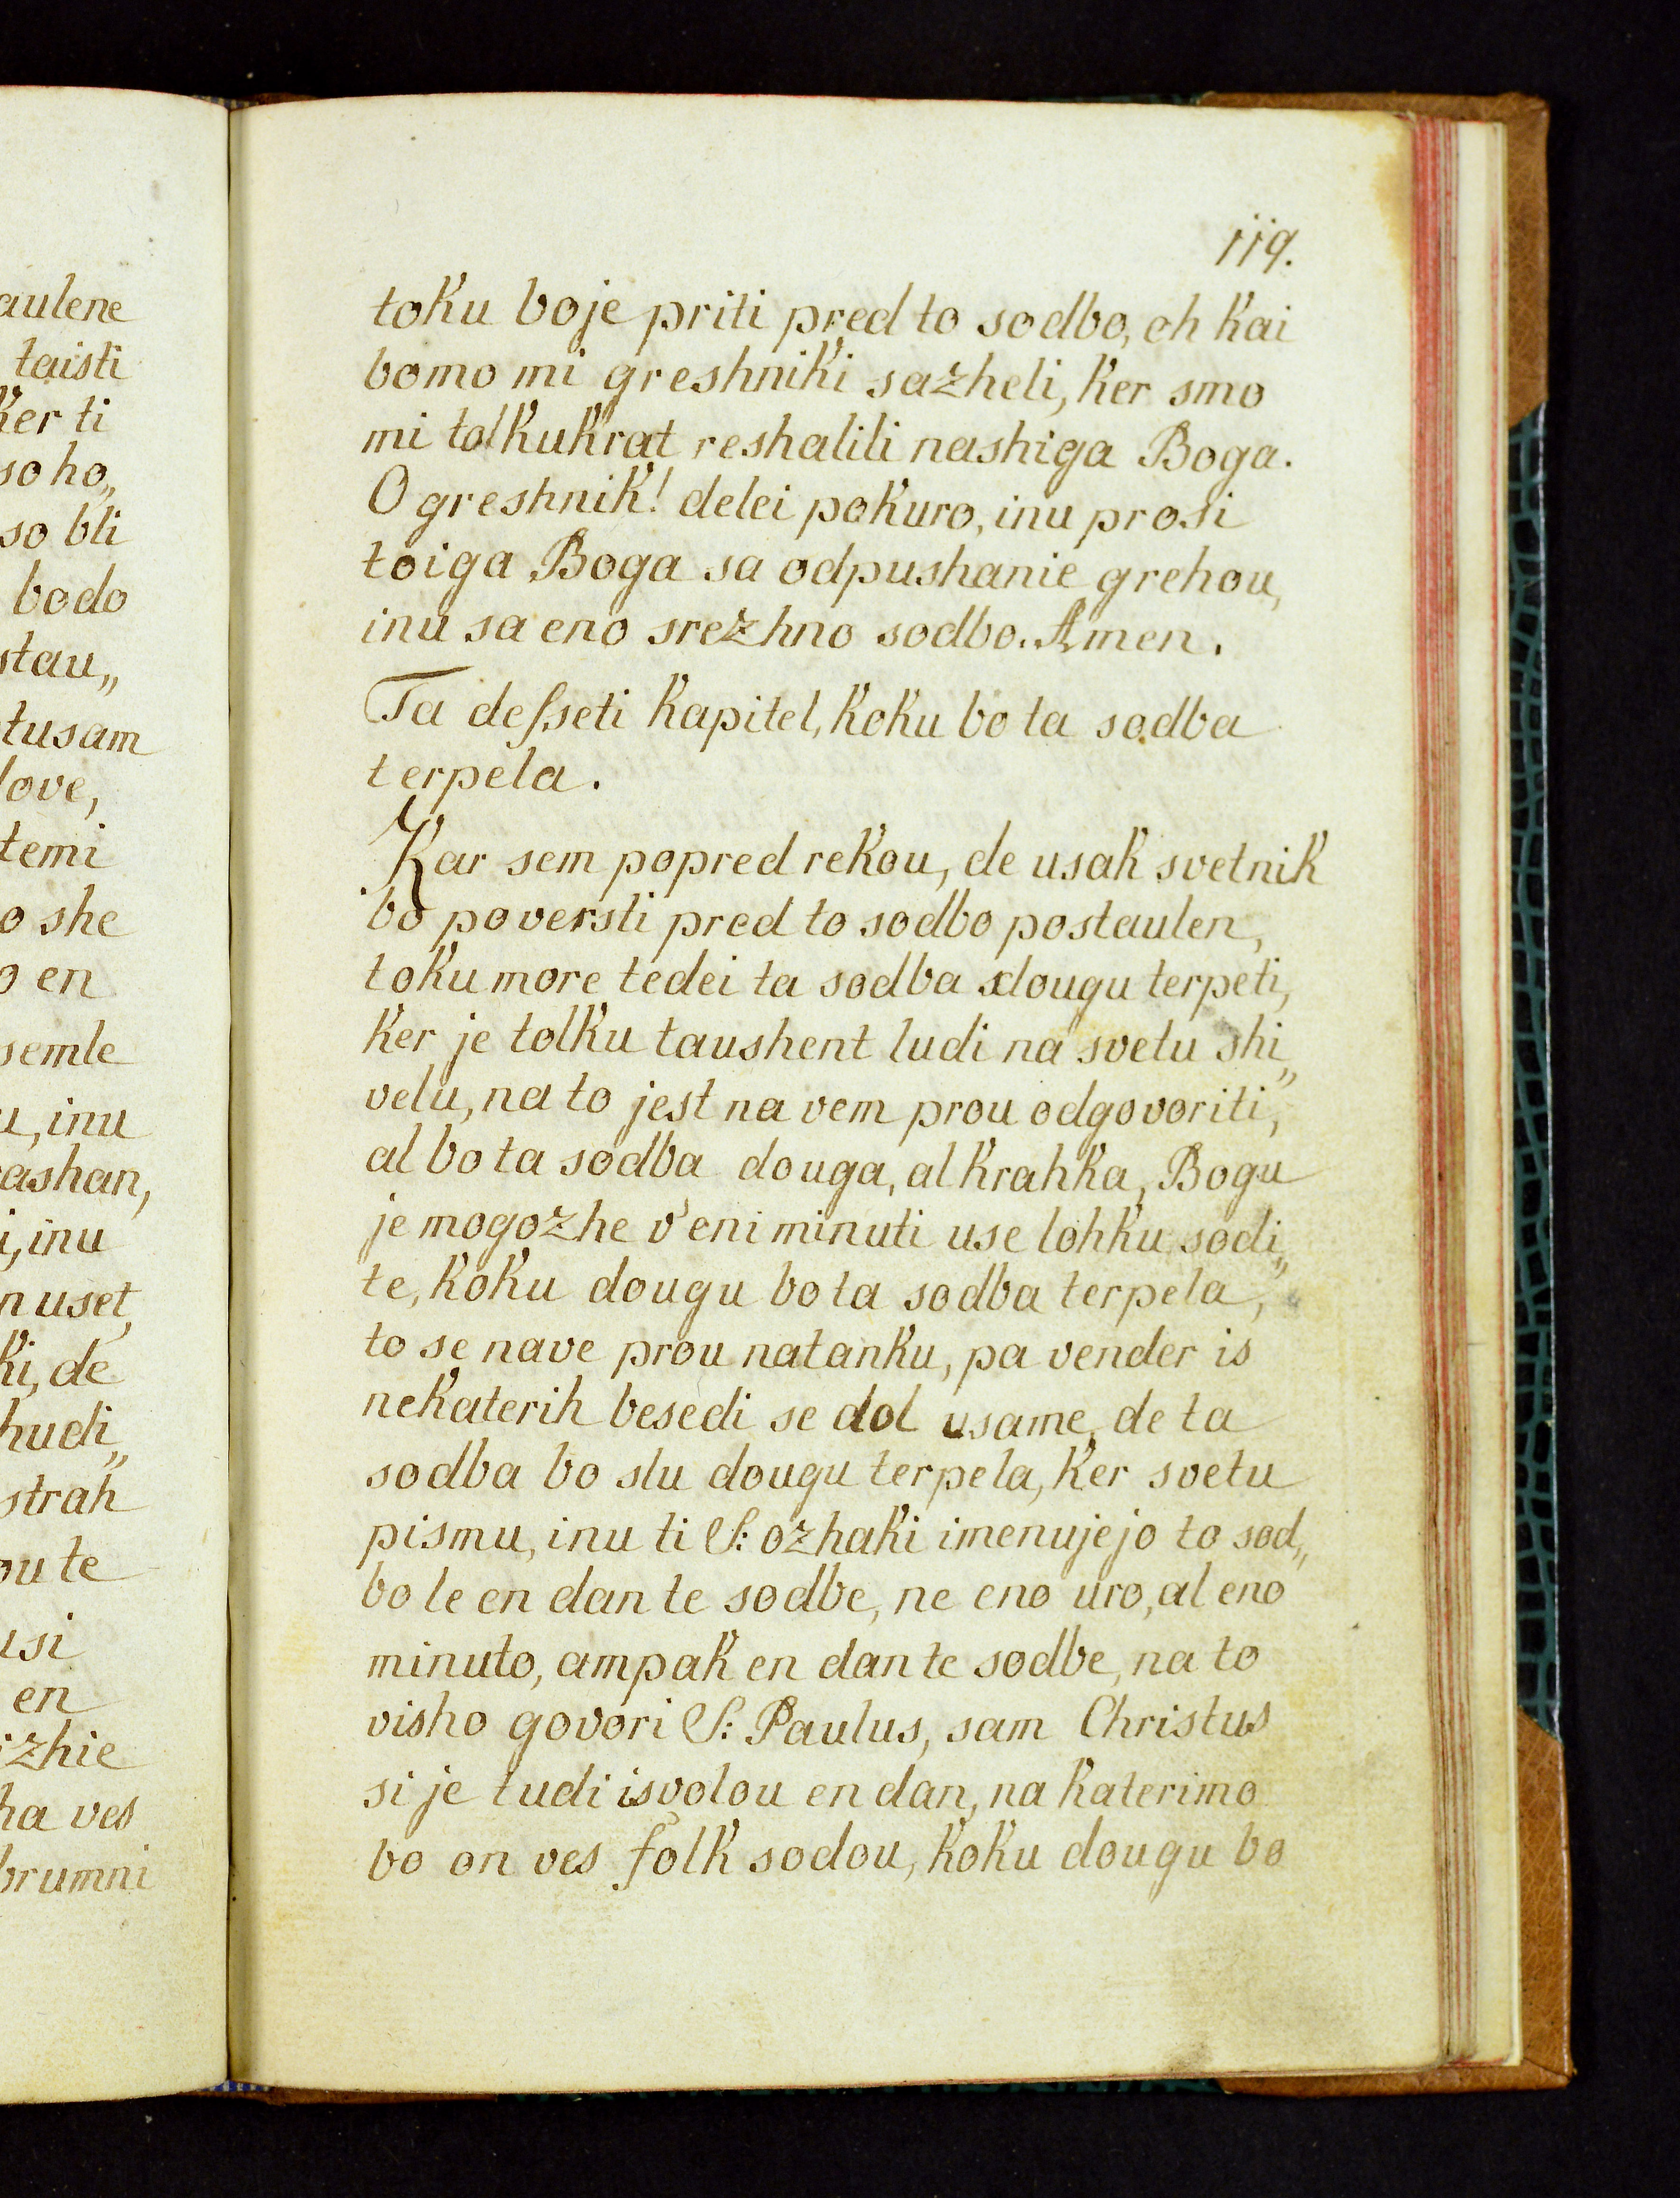 aulene
taisti
ker ti
so ho„
so bli
bodo
stau„
tusam
love,
temi
o she
o en
semle
u, inu
ashan,
i, inu
n uset,
ki, de
hudi„
strah
ou te
usi
en
izhie
ha ves
brumni
119.
toku boje priti pred to sodbo, oh kai
bomo mi greshniki sazheli, ker smo
mi tolkukrat reshalili nashiga Boga.
O greshnik! delei pokuro, inu prosi
toiga Boga sa odpushanie grehou,
inu sa eno srezhno sodbo. Amen.
Ta deſseti kapitel, koku bo ta sodba
terpela.
Kar sem popred rekou, de usak svetnik
bo poversti pred to sodbo postaulen,
toku more tedei ta sodba dougu terpeti,
ker je tolku taushent ludi na svetu shi„
velu, na to jest na vem prou odgovoriti,
al bo ta sodba douga, al krahka, Bogu
je mogozhe v' eni minuti use lohku sodi„
te, koku dougu bo ta sodba terpela,
to se nave prou natanku, pa vender is
nekaterih besedi se dol usame, de ta
sodba bo slu dougu terpela, ker svetu
pismu, inu ti S: ozhaki imenujejo to sod„
bo le en dan te sodbe, ne eno uro, al eno
minuto, ampak en dan te sodbe, na to
visho govori S: Paulus, sam Christus
si je tudi isvolou en dan, na katerimo
bo on ves folk sodou, koku dougu bo